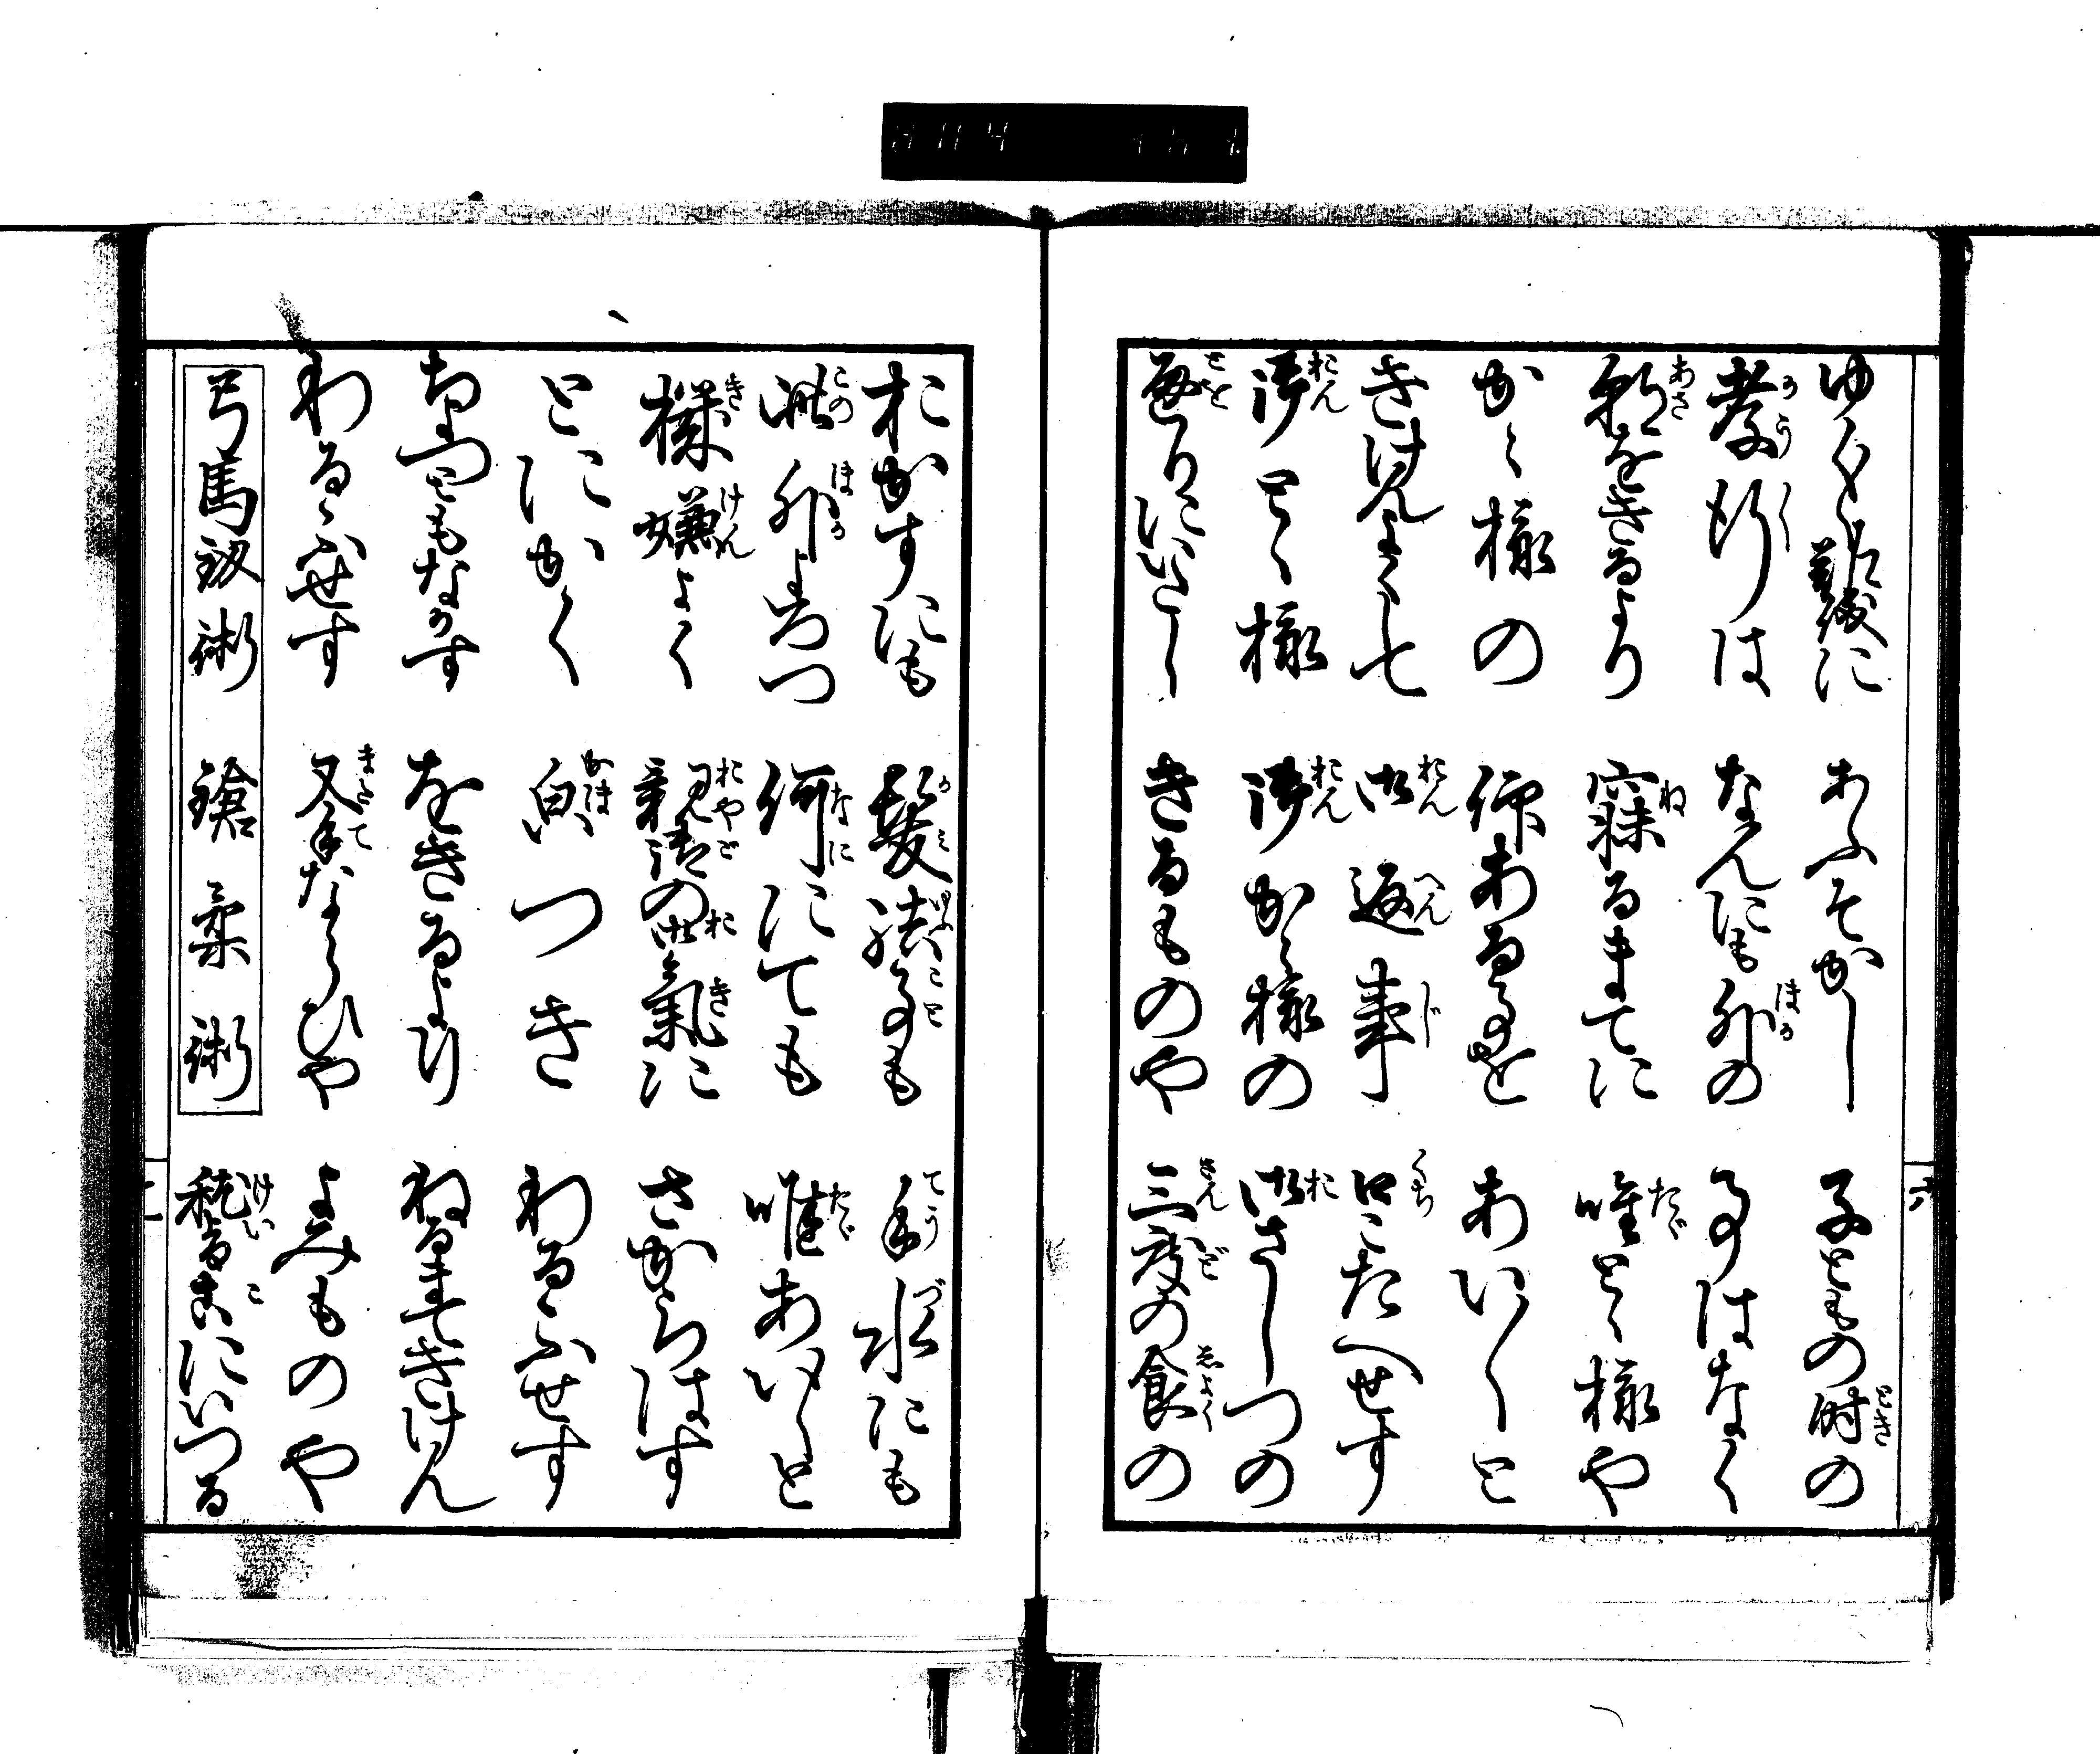 ゆく〳〵難儀にあふそかし子ともの時の
孝行はなんにも外の事はなく
朝をきるより寐るまてに唯とゝ様や
かゝ様の仰ある事をあい〳〵と
きけんよく七御返事口こたへせす
御とゝ様御かゝ様の御さしつの
通りにいたしきるものや三度の食の
おかすにも髪結事も手水にも
此外よろつ何にても唯あい〳〵と
機嫌よく親御の御氣にさからはす
とにかく㒵つきわるふせす
なつこもなかすをきるよりねるまてきけん
わるふせす又手ならひやよみものや
弓馬釼術 鎗柔術 稽古にいつる
六